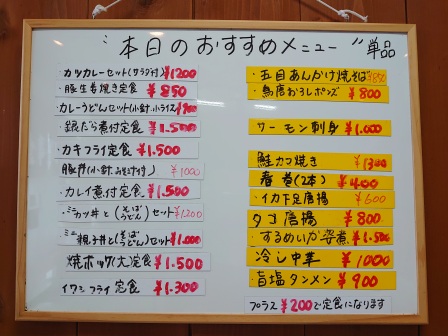 "本日のおすすめメニュー"
単品
カツカレーセット(サラダ付)¥1200
・豚生姜焼き定食 ¥850
カレーうどんセット(小鉢.小ライス)
・銀だら煮付定食 ¥1.500
カキフライ定食 ¥1.500
豚丼(小鉢.みそ汁付) ¥1000
・カレイ煮付定食 ¥1.500
・ミニカツ丼と(そば うどん)セット ¥1200
・ミニ親子丼と(そば うどん)セット ¥1.000
焼ホッケ(大)定食 ¥1.500
イワシフライ定食 ¥1.300
・五目あんかけ焼そば ¥850
・鳥唐おろしポンズ ¥800
サーモン刺身 ¥1.000
鮭カマ焼き ¥1300
春巻(2本) ¥400
・イカ下足唐揚 ¥600
タコ唐揚 ¥800
・するめいか姿煮 ¥1.500
冷し中華 ¥1000
・旨塩タンメン ¥900
プラス ¥200で定食になります